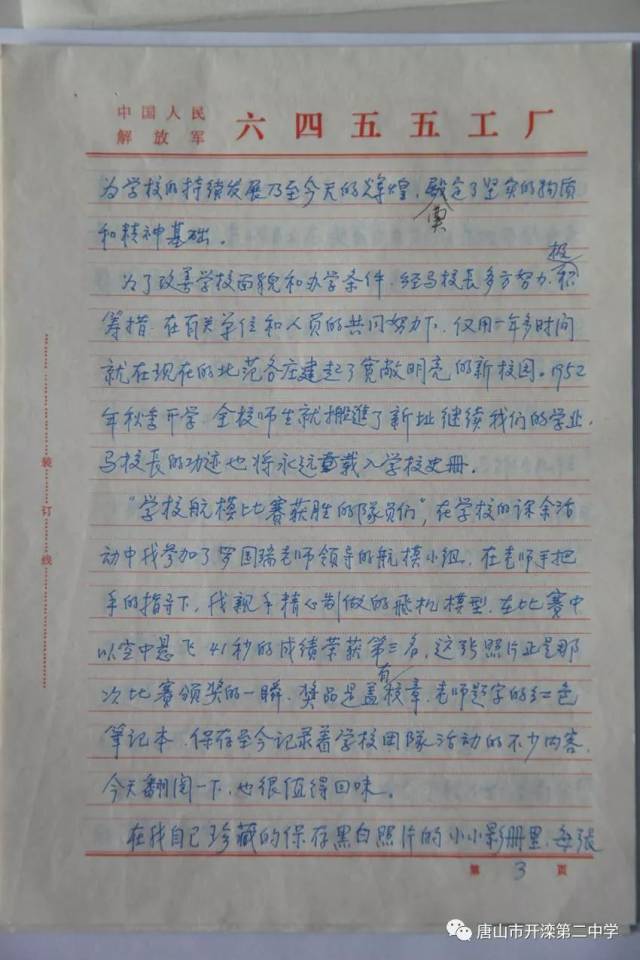 中国人民
解放军 六四五五工厂
为学校的持续发展乃至今天的辉煌，奠定了坚实的物质
和精神基础。
为了改善学校面貌和办学条件，经马校长多方努力，积极
筹措，在有关单位和人员的共同努力下，仅用一年多时间
就在现在的北范各庄建起了宽敞明亮的新校园。1952
年秋季开学，全校师生就搬進了新址继续我们的学业，
马校长的功迹也将永远载入学校史册。
“学校航模比赛获胜的队员们”，在学校的课余活
动中我参加了罗国瑞老师领导的航模小组，在老师手把
手的指导下，我亲手精心制做的飛机模型，在比赛中
以空中悬飞41秒的成绩荣获第三名，这张照片正是那
次比赛颁奖的一瞬，奖品是盖有校章，老师题字的红色
笔记本，保存至今记录着学校团队活动的不少内容，
今天翻阅一下，也很值得回味。
在我自己珍藏的保存黑白照片的小小影册里，每张
第 3 页
装订线
唐山市开滦第二中学